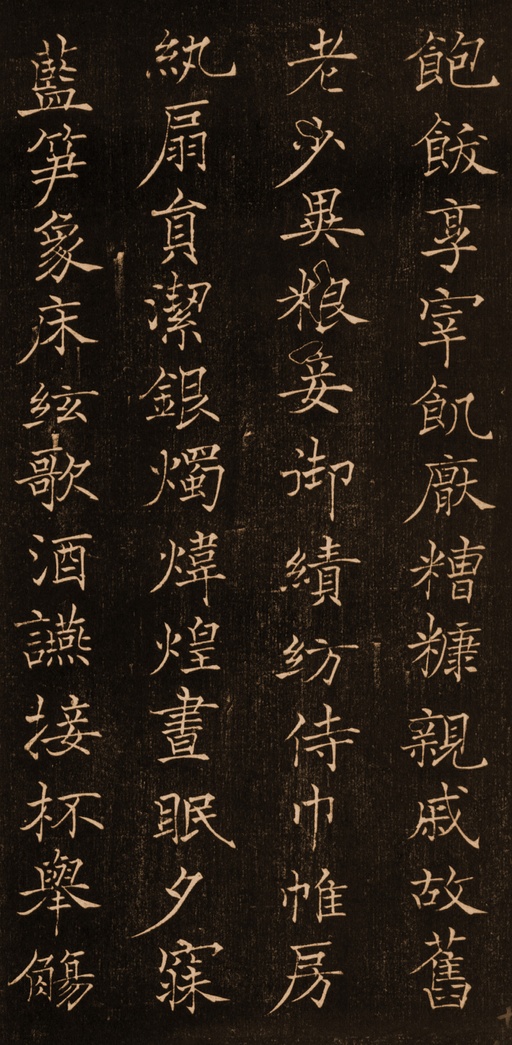 飽飫享宰飢厭糟糠親戚故舊
老少異粮妾御績紡侍巾帷房
紈扇貟潔銀燭煒煌晝眠夕寐
藍笋象床絃歌酒讌接杯舉觴